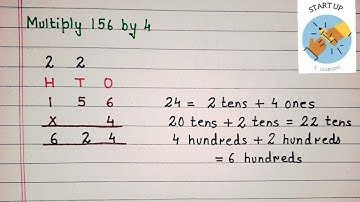 START UP
E-LEARNING
Multiply 156 by 4
2 2
H T O
1 5 6
x 4
6 2 4
24 = 2 tens + 4 ones
20 tens + 2 tens = 22 tens
4 hundreds + 2 hundreds
= 6 hundreds